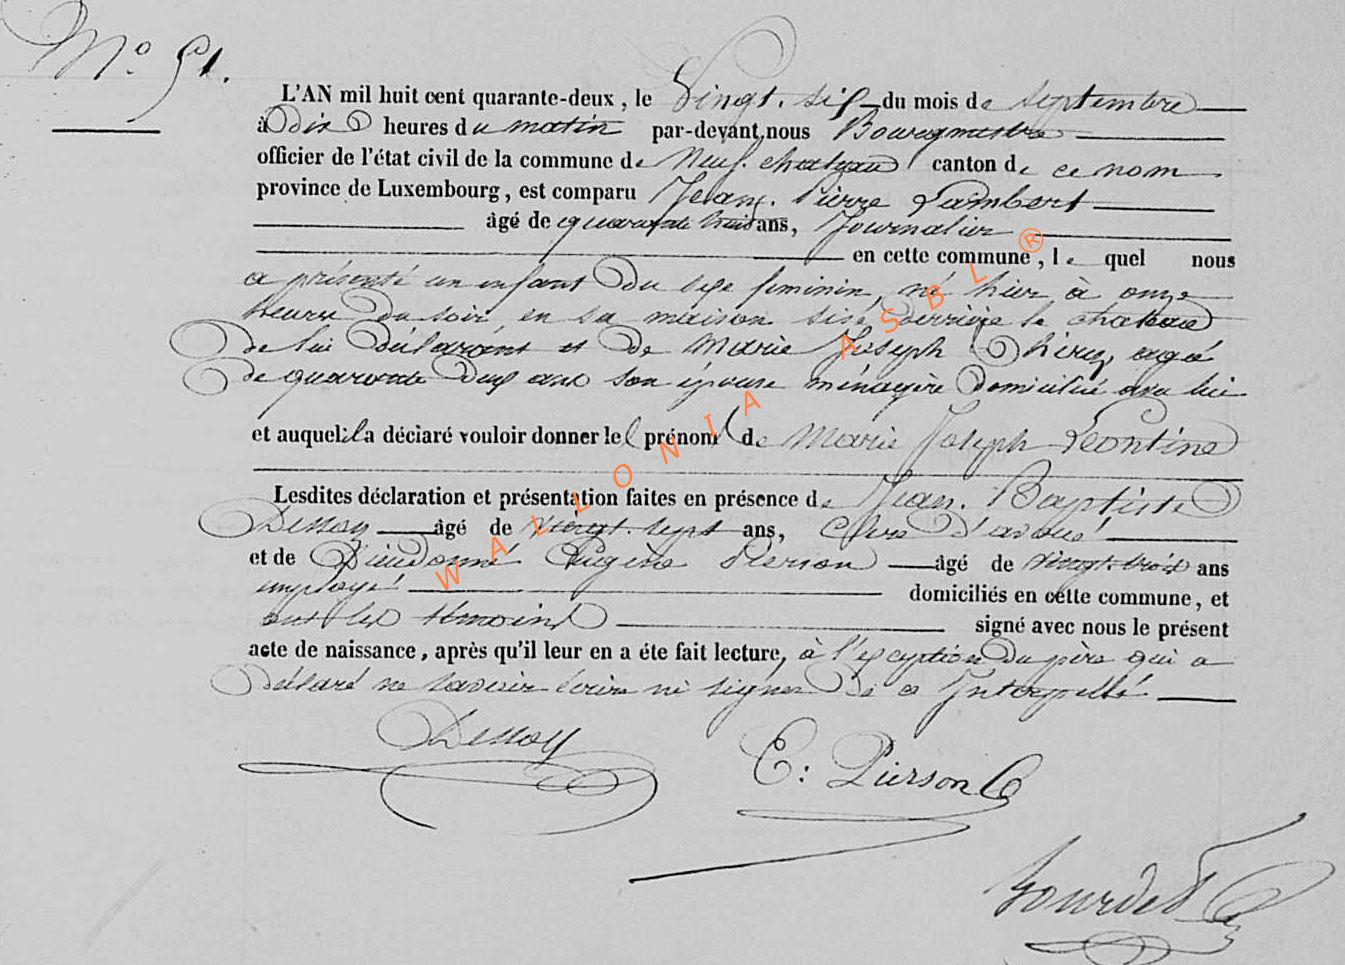 N.° 51.
L'AN mil huit cent quarante-deux, le Vingt-six du mois de septembre
à Dix heures du matin par-devant nous Bourgmestre
officier de l'état civil de la commune de Neufchateau canton de ce nom
province de Luxembourg, est comparu Jean-Pierre Lambert
âgé de quarante huit ans, Journalier
en cette commune, le quel nous
a présenté un enfant Du sexe feminin, né hier à onze
heures Du soir en sa maison sise derrière le chateau
De lui Déclarant et De Marie Joseph agée
De quarante Deux ans son épouse ménagère Domicilié avec lui
et auquel il a déclaré vouloir donner le prénom de Marie Joseph Leontine
Lesdites déclaration et présentation faites en présence de Jean-Baptiste
Dessoy âgé de vingt-sept ans, Clerc D'avoué
et de Dieudonné Eugène Pierson âgé de vingt-trois ans
employé domiciliés en cette commune, et
ont les témoins signé avec nous le présent
acte de naissance, après qu'il leur en a éte fait lecture, à l'exception Du père qui a
Déclaré ne savoir écrire ni signer De ce Interpellé
Dessoy
E: Pierson
Gourdet
WALLONIA ASBL ®